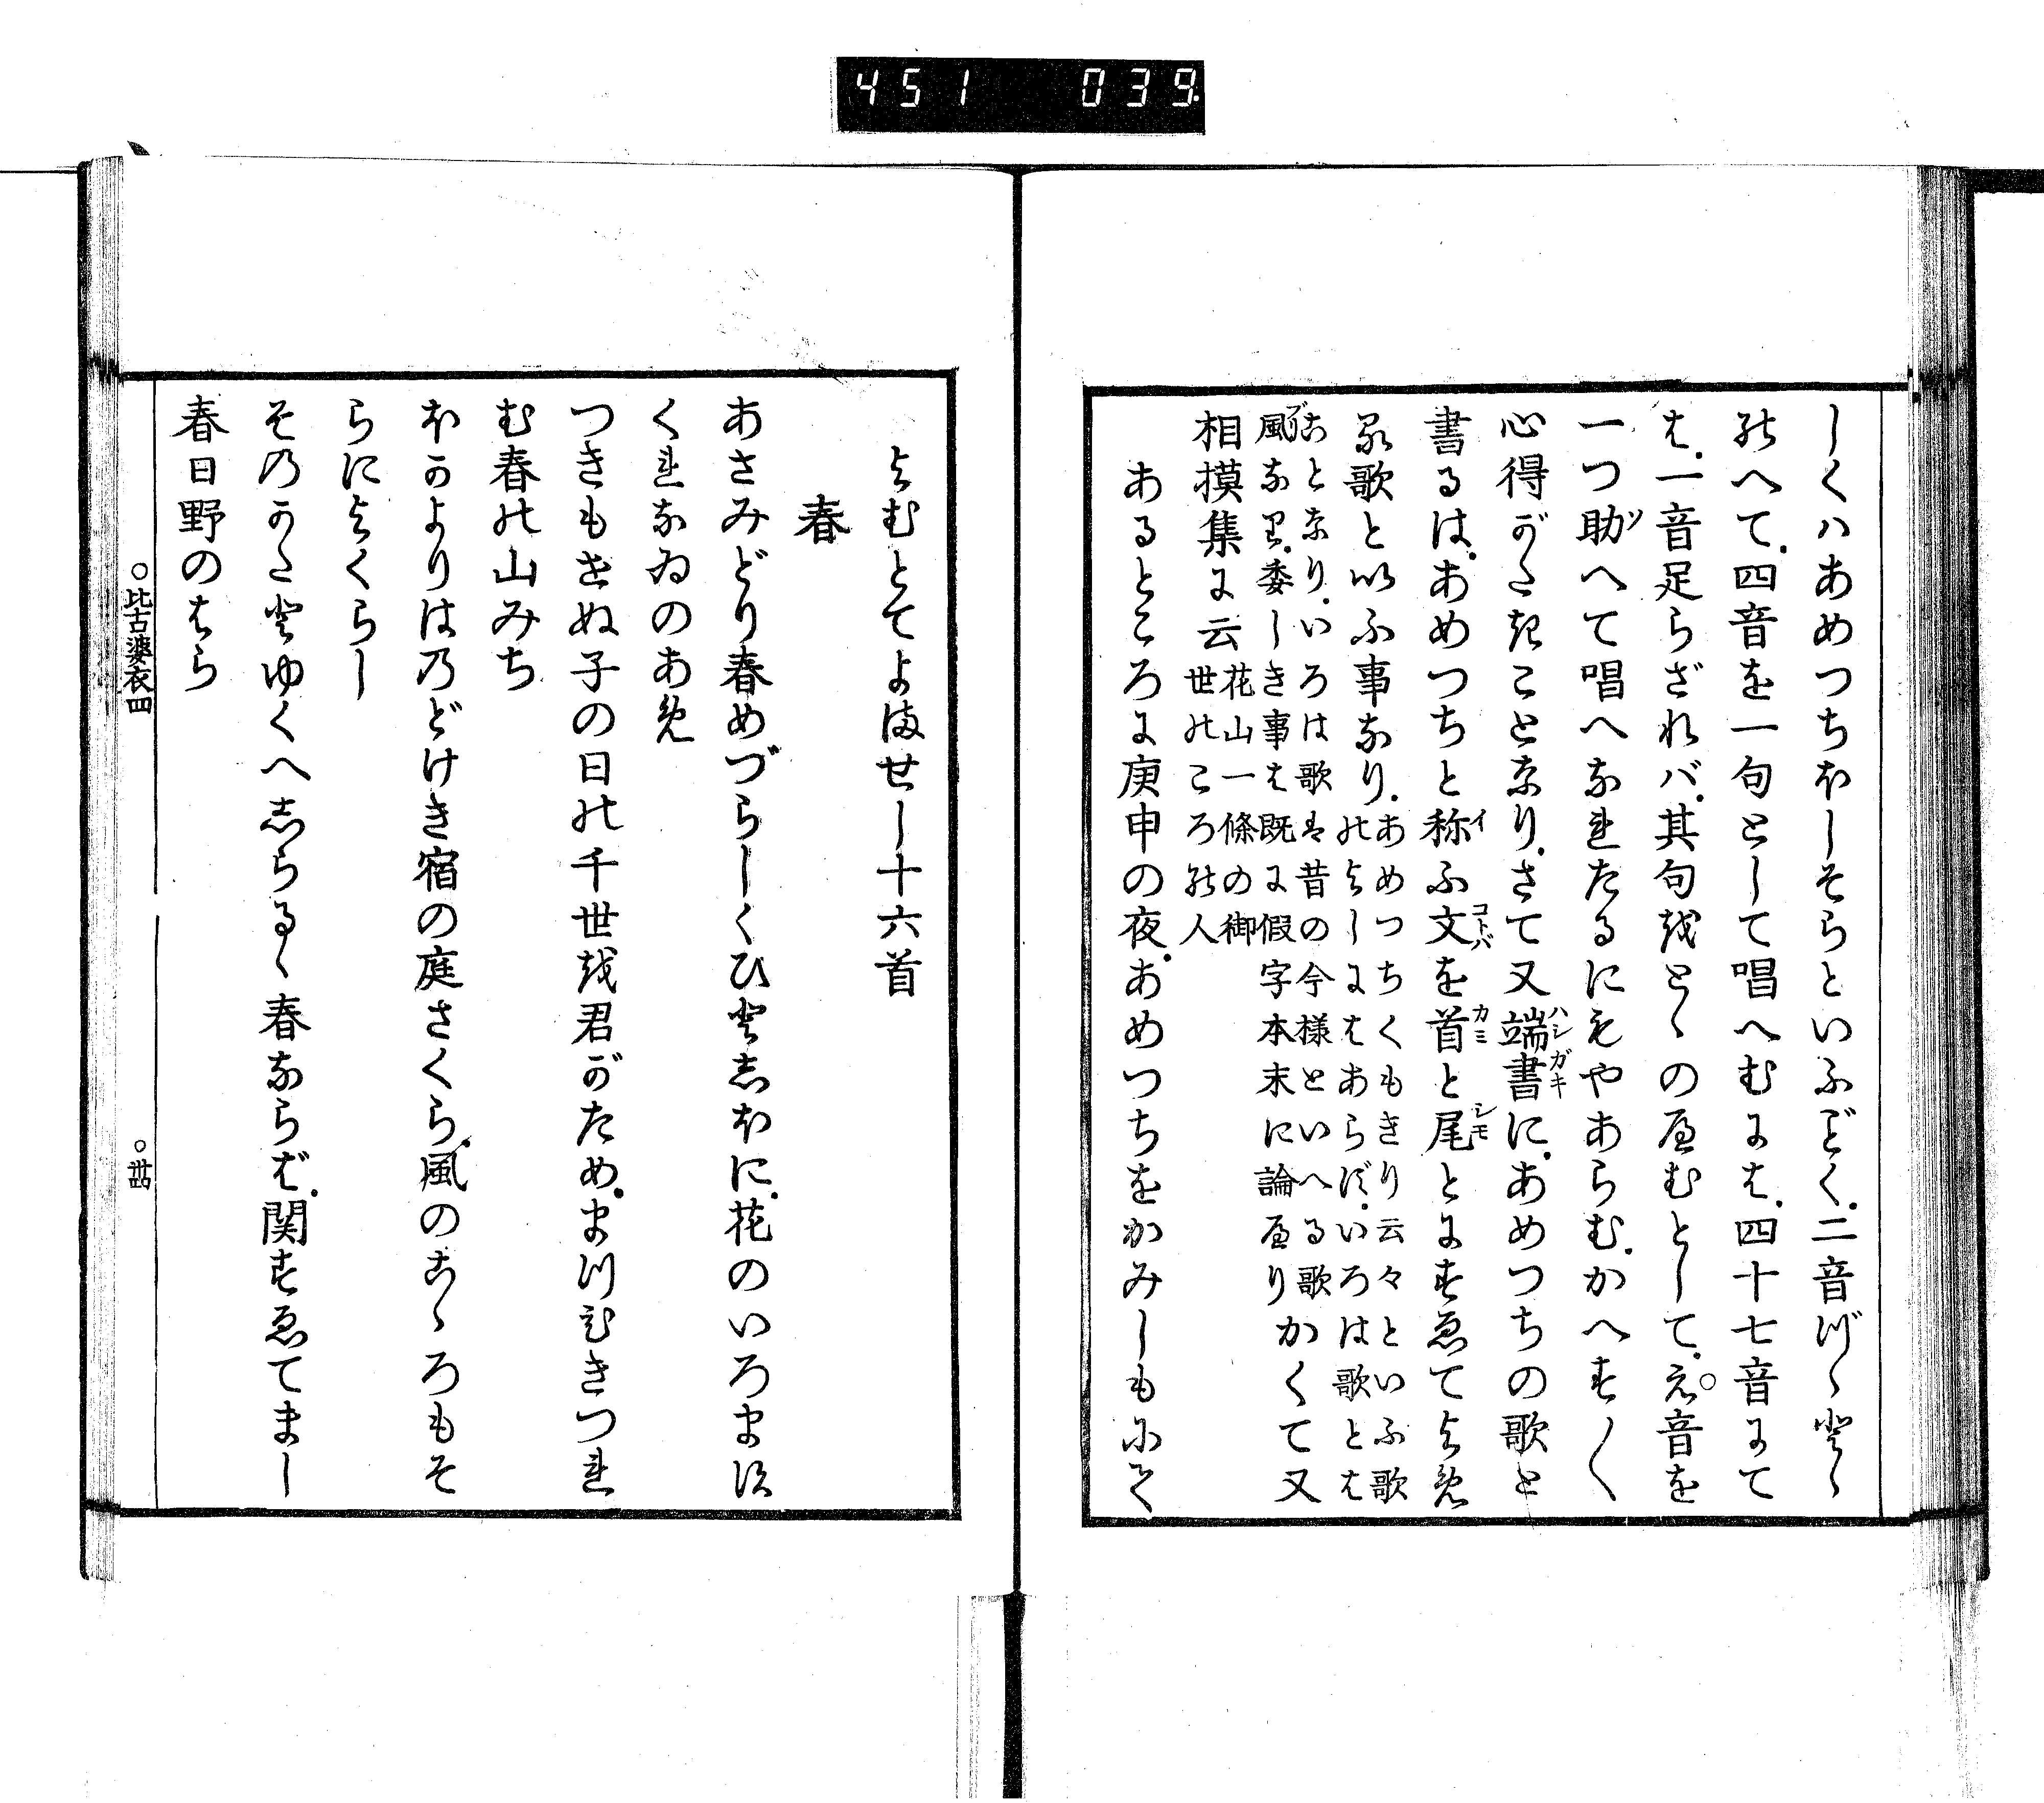 451 039.
しくハあめつちほしそらといふごく二音づゝとゝ
のへて四音を一句として唱へむにも四十七音にて
は一音足らざれバ其句をとゝのへむとしてえ音を
一つ助へて唱へなれたるにもやあらむかへす〴〵
ソ
心得がたきことなりさて又端書にあめつちの歌と
ハシガキ
書るはあめつちと称ふ文を首と尾とにすゑてよめ
イ コトバ カミ シモ
る歌といふ事なり
あめつちくもきり云々といふ歌
のよしにはあらずいろは歌とは
ことなりいろは歌は昔の今様といへる歌
風なり委しき事は既に假字本末に論へり
ブリ
かくて又
相摸集に云
花山一條の御
世のころの人
あるところに庚申の夜あめつちをかみしもにて
よむとてよませし十六首
春
あさみどり春めづらしくひとしほに花のいろます
くれなゐのあめ
つきもせぬ子の日の千世を君がためまづひきつれ
む春の山みち
ほかよりはのどけき宿の庭さくら風のこゝろもそ
らによくらし
そのかたとゆくへしらるゝ春ならば関すゑてまし
春日野のはら
○比古婆衣四
○卌